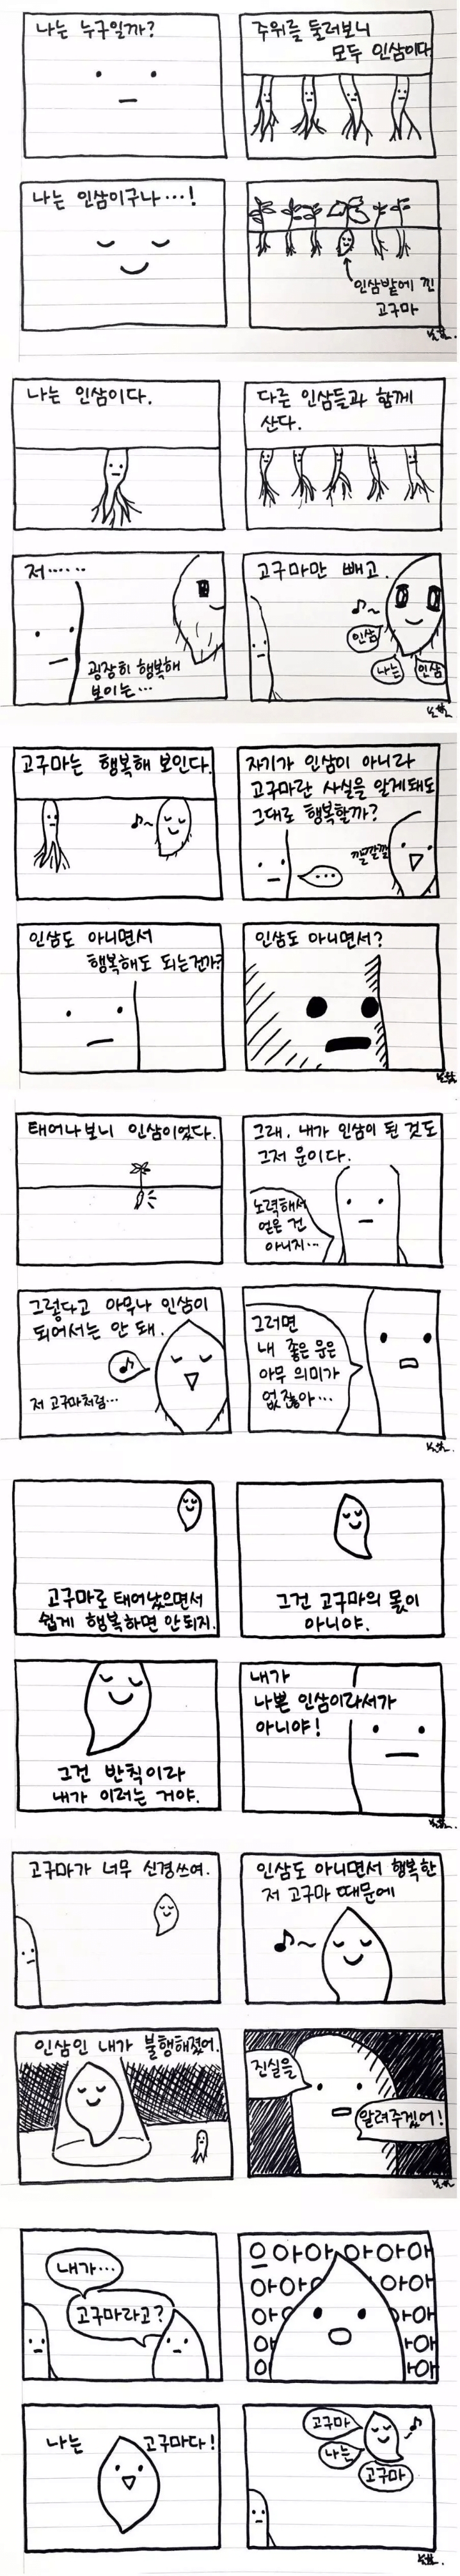 나는 누구일까?
주위를 둘러보니
모두 인삼이다
나는 인삼이구나…!
인삼밭에 낀
고구마
나는 인삼이다.
다른 인삼들과 함께
산다.
저……
굉장히 행복해
보이는…
고구마만 빼고.
인삼
나는
인삼
고구마는 행복해 보인다.
자기가 인삼이 아니라
고구마란 사실을 알게돼도
그대로 행복할까?
...
깔깔깔
인삼도 아니면서
행복해도 되는건가?
인삼도 아니면서?
태어나보니 인삼이었다.
그래, 내가 인삼이 된 것도
그저 운이다.
노력해서
얻은 건
아니지…
그렇다고 아무나 인삼이
되어서는 안 돼.
저 고구마처럼…
그러면
내 좋은 운은
아무 의미가
없잖아…
고구마로 태어났으면서
쉽게 행복하면 안되지.
그건 고구마의 몫이
아니야.
그건 반칙이라
내가 이러는 거야.
내가
나쁜 인삼이라서가
아니야!
고구마가 너무 신경쓰여.
인삼도 아니면서 행복한
저 고구마 때문에
인삼인 내가 불행해졌어.
진실을
알려주겠어!
내가…
고구마라고?
으아아아아아
아아아아
아아아
아아
아아
나는 고구마다!
고구마
나는
고구마